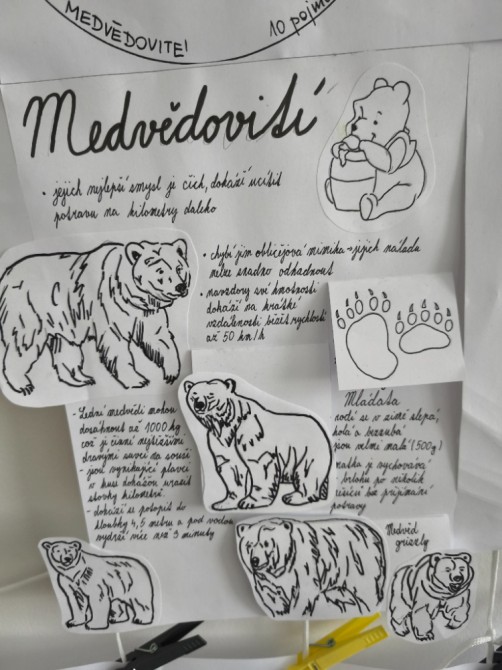 MEDVĚDOVITE!
10 pojm
Medvědovití
• jejich nejlepší smysl je čich, dokáží ucítit
potravu na kilometry daleko
• chybí jim obličejová mimika → jejich náladu
nelze snadno odhadnout
• navzdory své hmotnosti
dokáží na krátké
vzdálenosti běžet rychlostí
až 50 km/h
- Lední medvědi mohou
dosáhnout až 1000 kg
což je činí nejtěžšími
dravými savci na souši
- jsou vynikající plavci
v kuse dokážou urazit
stovky kilometrů
- dokáží se potopit do
hloubky 4,5 metru a pod vodou
vydrží více než 3 minuty
Mláďata
rodí se v zimě slepá,
holá a bezzubá
jsou velmi malá (500g)
matka je vychovává
brlohu po několik
měsíců bez přijímání
potravy
Medvěd
grizzly